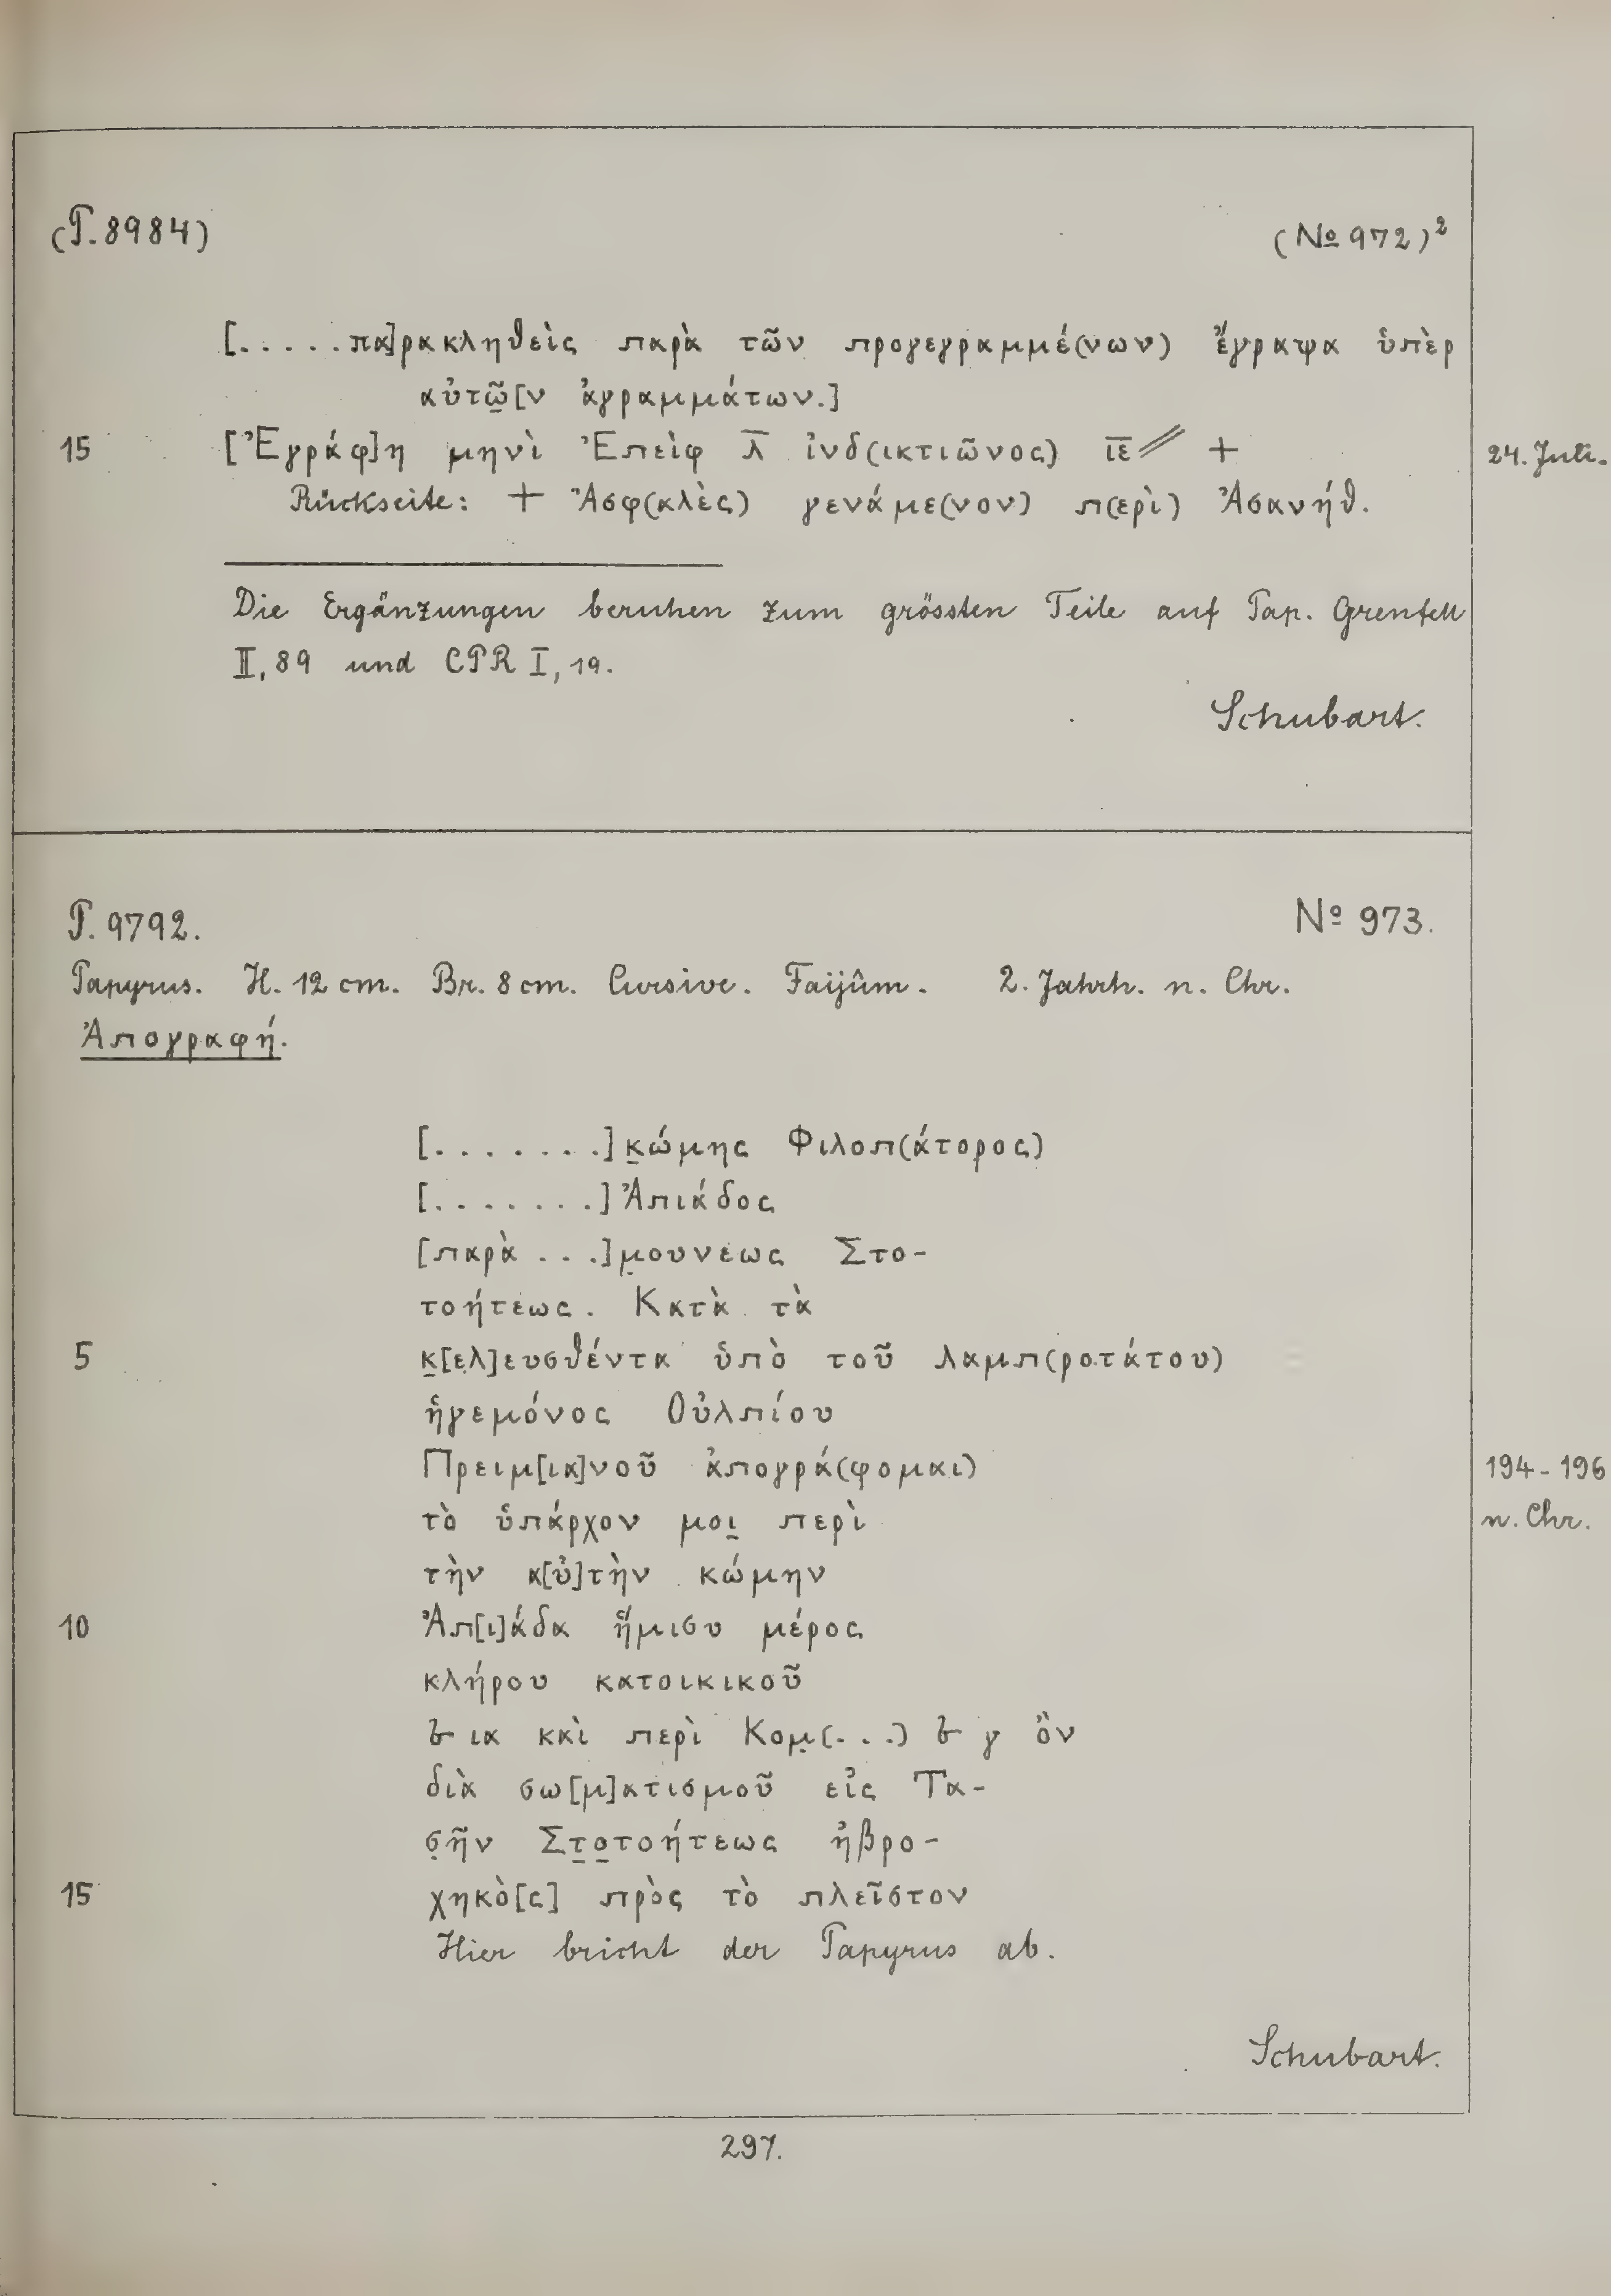 (P. 8984) (No 972)²
[.....πα]ρακληθεὶς παρὰ τῶν προγεγραμμέ(νων) ἔγραψα ὑπὲρ
αὐτῶ̣[ν ἀγραμμάτων.]
15 [Ἐγράφ]η μηνὶ Ἐπεὶφ λ̅ ἰνδ(ικτιῶνος) ι̅ε̅ // + 24. Juli.
Rückseite: + Ἀσφ(αλὲς) γενάμε(νον) π(ερὶ) Ἀσανήθ.
Die Ergänzungen beruhen zum grössten Teile auf Pap. Grenfell
II, 89 und CPR I, 19.
Schubart.
P. 9792. No 973.
Papyrus. H. 12 cm. Br. 8 cm. Cursive. Faijûm. 2. Jahrh. n. Chr.
Ἀπογραφή.
[........]κ̣ώμης Φιλοπ(άτορος)
[.......]Ἀπιάδος
[παρὰ ...]μ̣ουνεως Στο-
τοήτεως. Κατὰ τὰ
5 κ̣[ελ]ευσθέντα ὑπὸ τοῦ λαμπ(ροτάτου)
ἡγεμόνος Οὐλπίου
Πρειμ[ια]νοῦ ἀπογρά(φομαι) 194-196
τὸ ὑπάρχον μοι̣ περὶ n. Chr.
τὴν α[ὐ]τὴν κώμην
10 Ἀπ[ι]άδα ἥμισυ μέρος
κλήρου κατοικικοῦ
𐅹 ια καὶ περὶ Κομ̣(...) 𐅹 γ ὃν
διὰ σω[μ]ατισμοῦ εἰς Τα-
σ̣ῆν Στ̣ο̣τοήτεως ἠβρο-
15 χηκὸ[ς] πρὸς τὸ πλεῖστον
Hier bricht der Papyrus ab.
Schubart.
297.